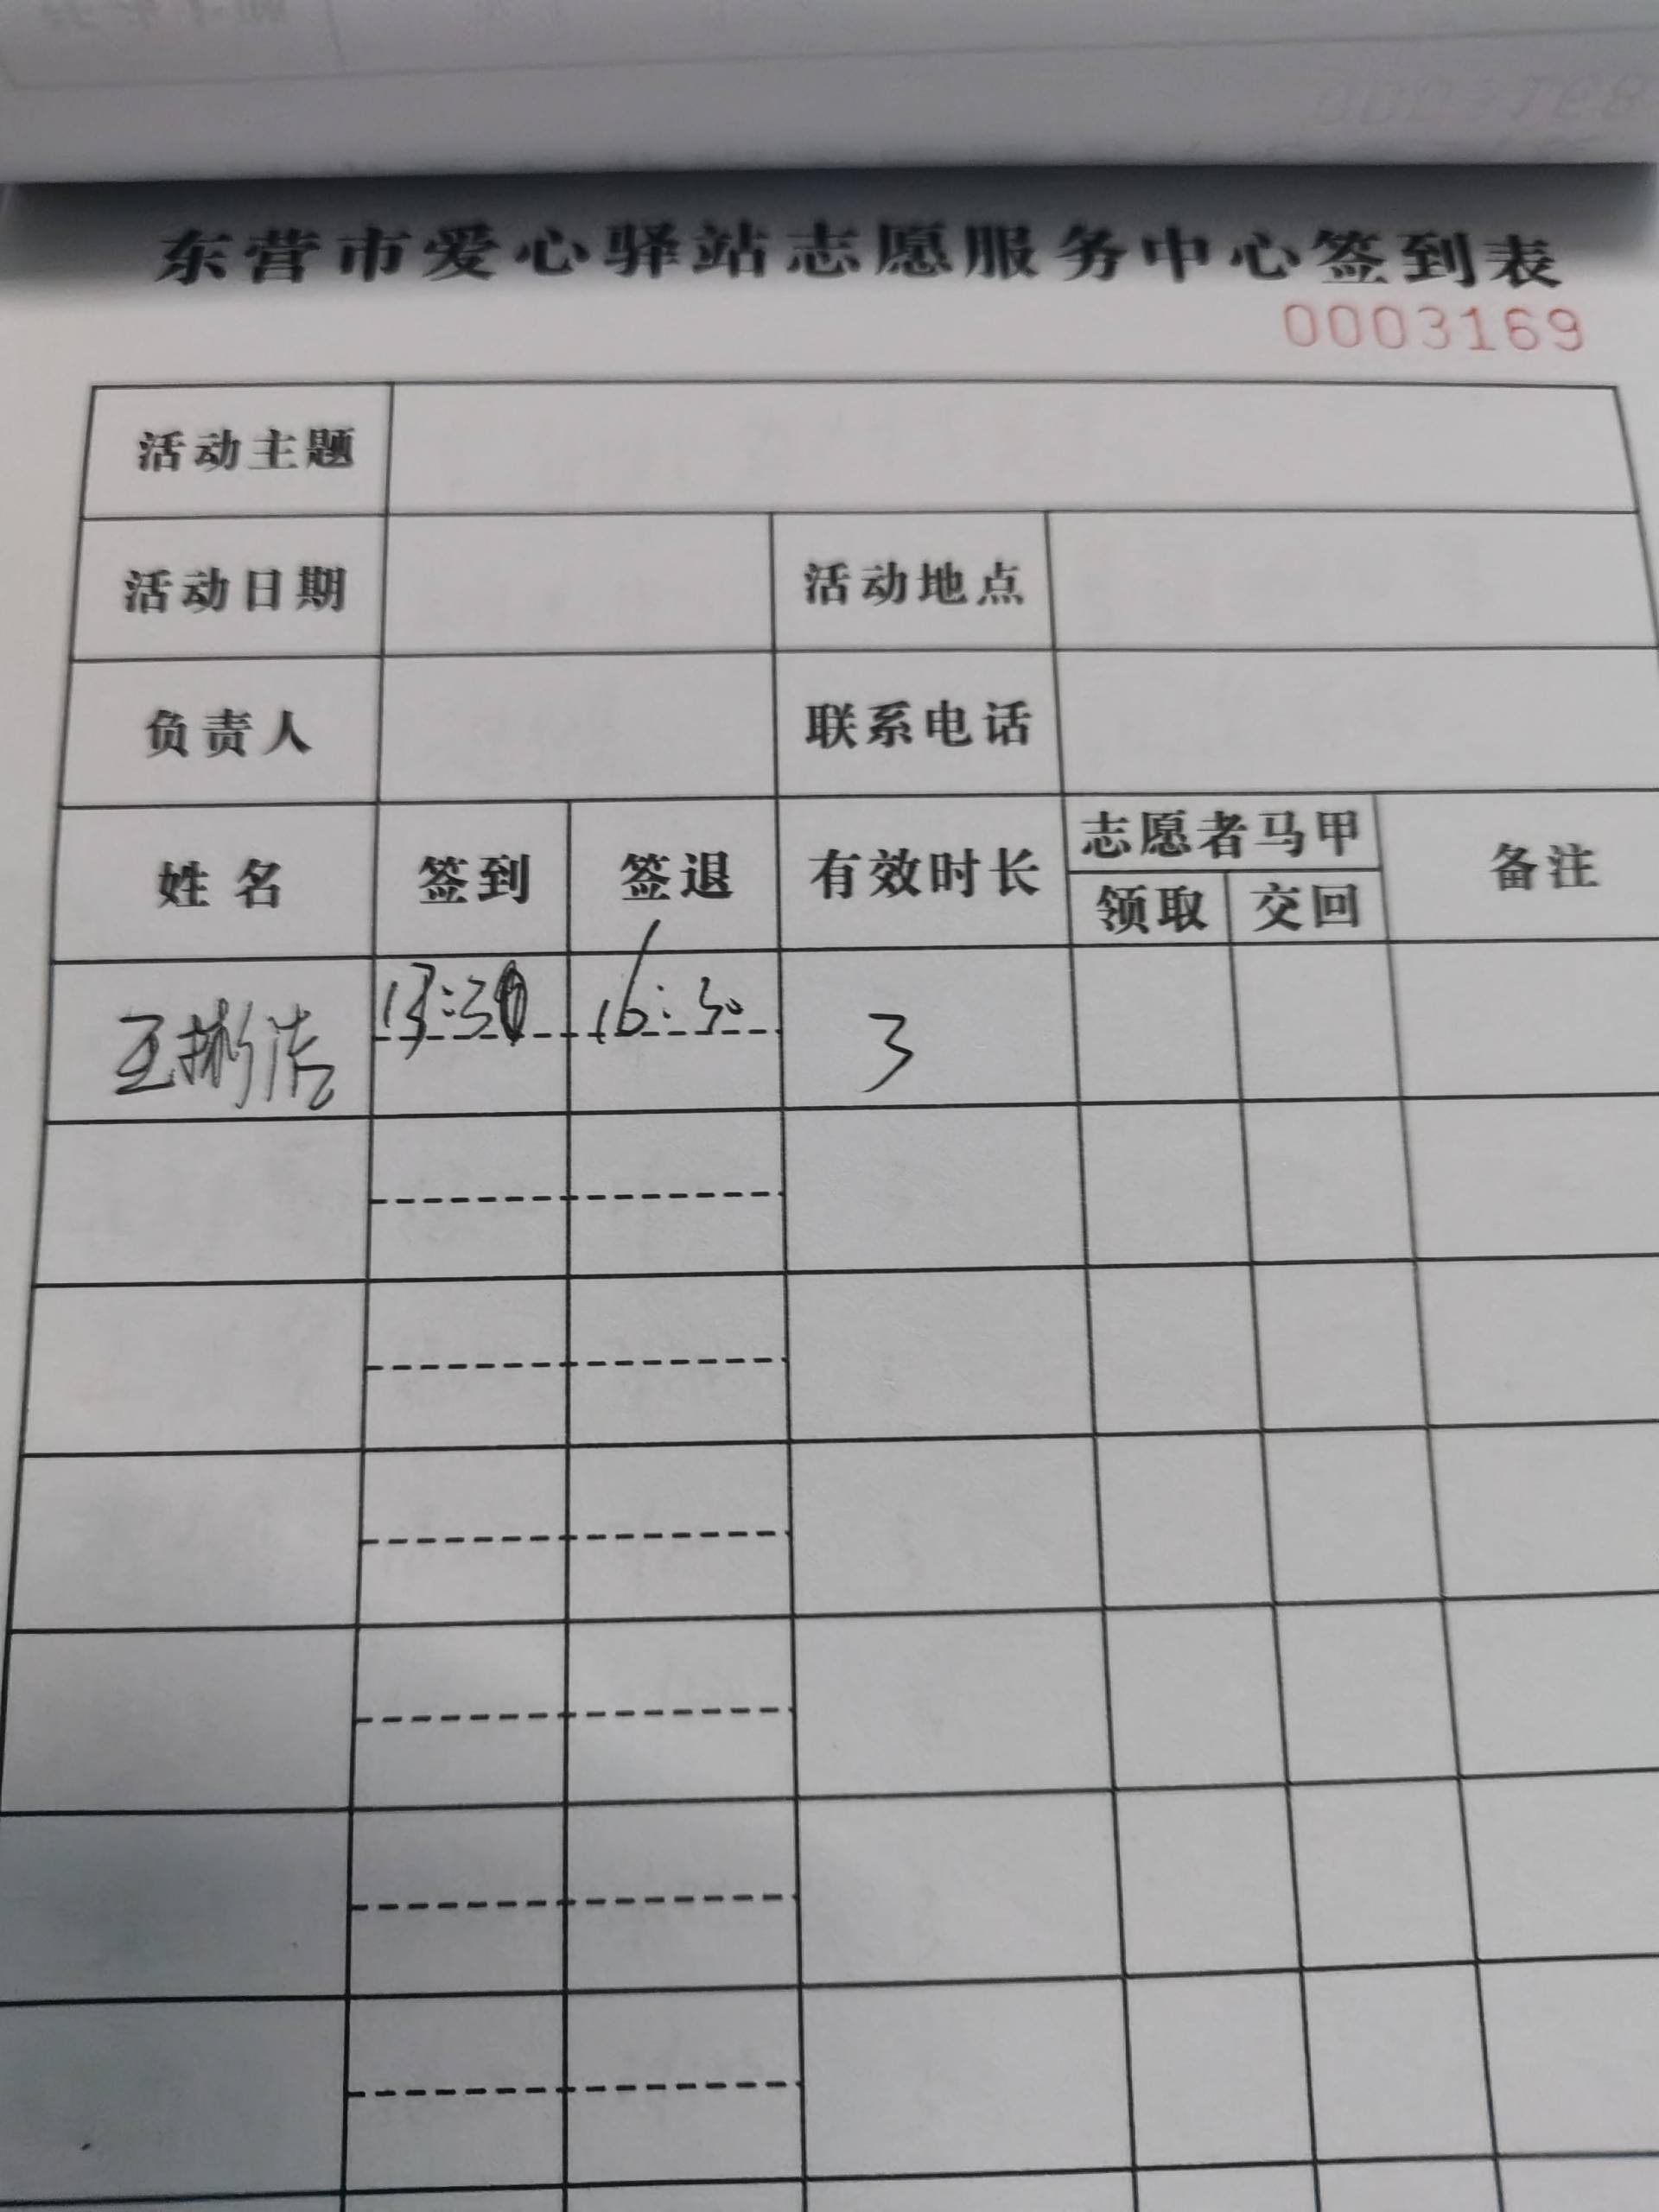 东营市爱心驿站志愿服务中心签到表
0003169
活动主题
活动日期 活动地点
负责人 联系电话
姓名 签到 签退 有效时长 志愿者马甲 备注
领取 交回
13:30 16:30 3